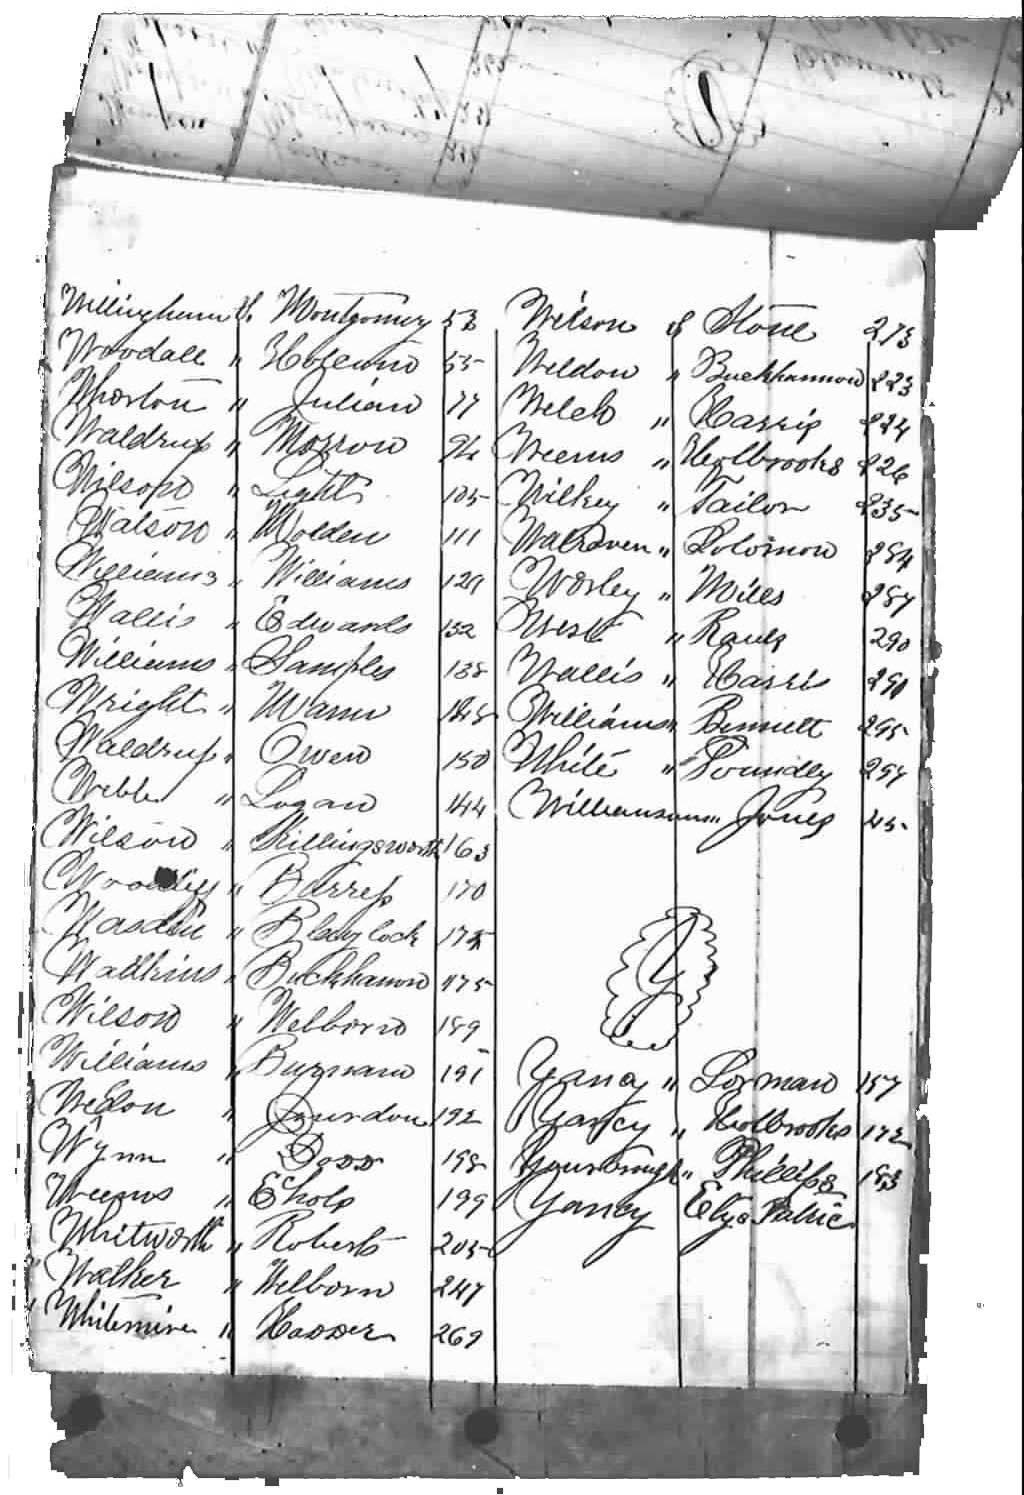 Willingham & Montgomery 53
Woodall " Holcomb 55
Whorton " Julian 77
Waldrup " Morrow 94
Wilson " Light 105
Watson " Wolden 111
Williams " Williams 129
Wallis " Edwards 132
Williams " Samples 138
Wright " Mann 148
Waldrup " Owen 150
Webb " Logan 144
Wilson " Killingsworth 163
" Burress 170
Wasdin " Blaylock 175
Wadkins " Buckhannon 175
Wilson " Welborn 189
Williams " Burnam 191
Weldon " Jourdon 192
Wynn " Doss 198
Weems " Echols 199
Whitworth " Roberts 205
Walker " Welborn 247
Whitemire " 269
Wilson & Stone 213
Weldon " Buckhannon 223
Welch " Harris 224
Weems " Holbrooks 226
Wilkey " Tailor 235
Walraven " Solomon 254
Worley " Mills 287
West " 290
Wallis " Harris 290
Williams " Bennett 295
White " Poundly 297
Williamson " Jones 45
Y
Yancy " Lorman 157
Yancy " Holbrooks 172
" Phillips 183
Yancy